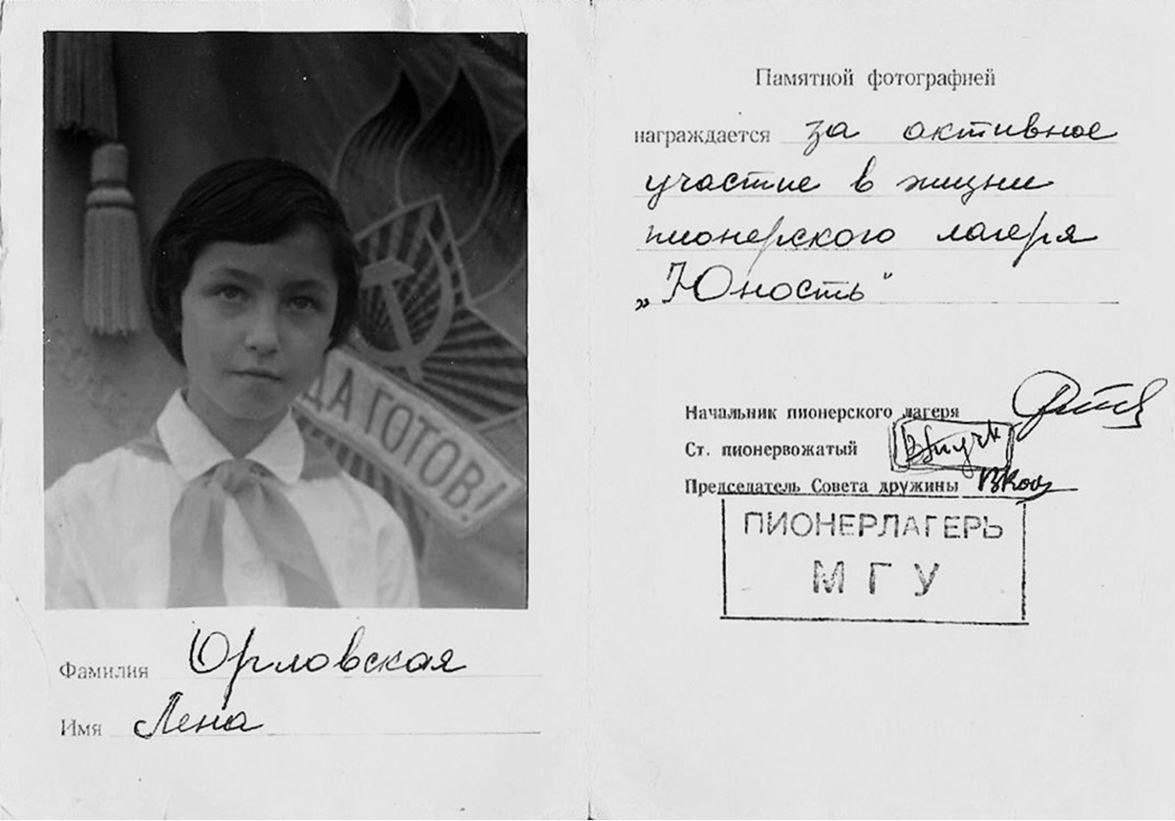 ДА ГОТОВ!
Фамилия Орловская
Имя Лена
Памятной фотографией
награждается за активное
участие в жизни
пионерского лагеря
„Юность“
Начальник пионерского лагеря
Ст. пионервожатый
Председатель Совета дружины
ПИОНЕРЛАГЕРЬ
МГУ